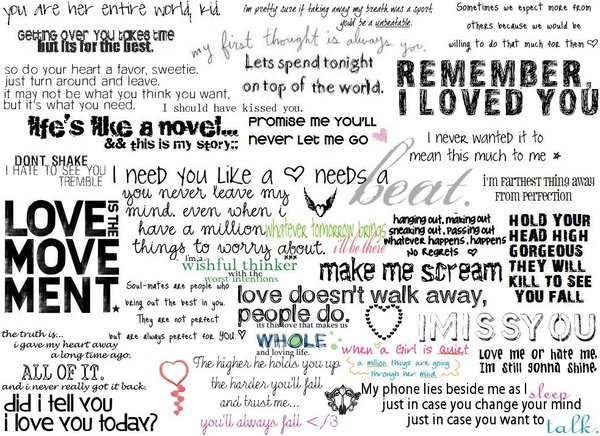 you are her entire world, kid.
i'm pretty sure if taking away my breath was a sport
you'd be a unbeatable.
Sometimes we expect more from
others because we would be
willing to do that much for them ♡
Getting over you takes time
but its for the best.
my first thought is always you.
so do your heart a favor, sweetie.
just turn around and leave.
it may not be what you think you want,
but it's what you need.
Lets spend tonight
on top of the world.
REMEMBER,
I LOVED YOU
I should have kissed you.
life's like a novel...
&& this is my story::
Promise me you'll
never let me go
I never wanted it to
mean this much to me ★
DONT SHAKE
I HATE TO SEE YOU
TREMBLE
I need you like a ♡ needs a
beat.
i'm farthest thing away
from perfection
LOVE
IS THE
MOVE
MENT.
you never leave my
mind. even when
i have a million
things to worry about.
whatever tomorrow brings
i'll be there
hanging out, making out
sneaking out, passing out
whatever happens, happens
No Regrets ♡
HOLD YOUR
HEAD HIGH
GORGEOUS
THEY WILL
KILL TO SEE
YOU FALL
i'm a
wishful thinker
with the
worst intentions
make me scream
Soul-mates are people who
bring out the best in you.
They are not perfect
but are always perfect for YOU.♡
love doesn't walk away,
people do.
its this love that makes us
WHOLE
and loving life.
I MISS YOU
the truth is...
i gave my heart away
a long time ago.
ALL OF IT.
and i never really got it back.
did i tell you
i love you today?
The higher he holds you up
the harder you'll fall
and trust me...
you'll always fall </3
when a Girl is Quiet
a million things are going
through her mind
Love me or hate me,
Im still gonna shine.
My phone lies beside me as I sleep
just in case you change your mind
just in case you want to talk.